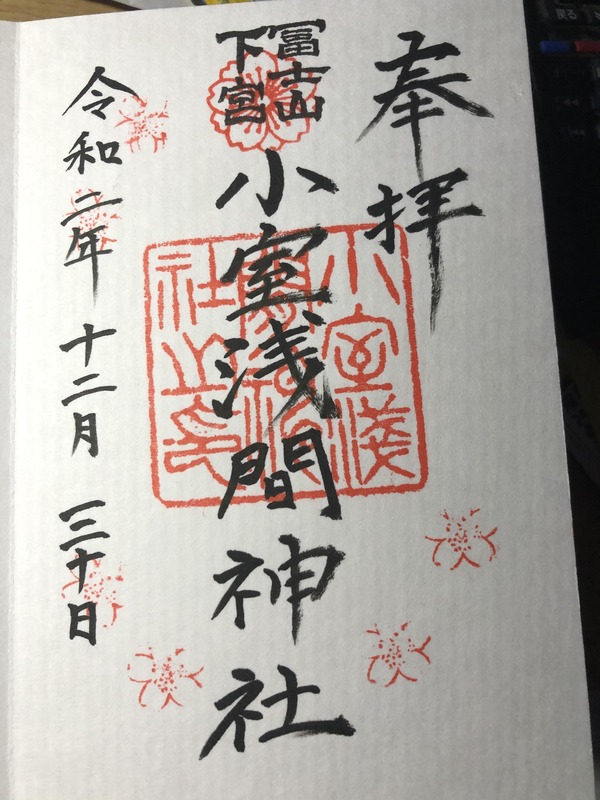 奉拝
冨士山
下宮
小室浅間神社
小室浅
間神
社之印
令和二年 十二月 三十日
戻る